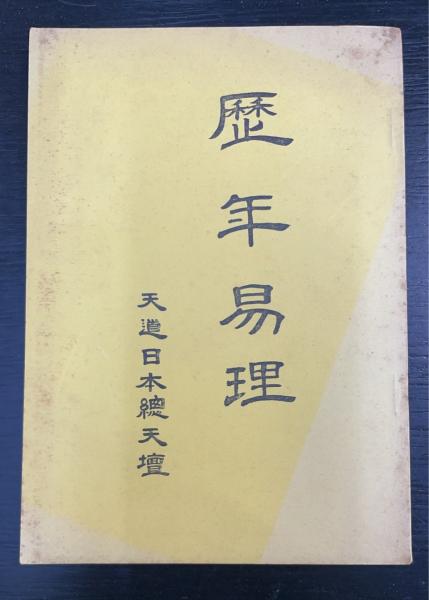 歷年易理
天道日本總天壇